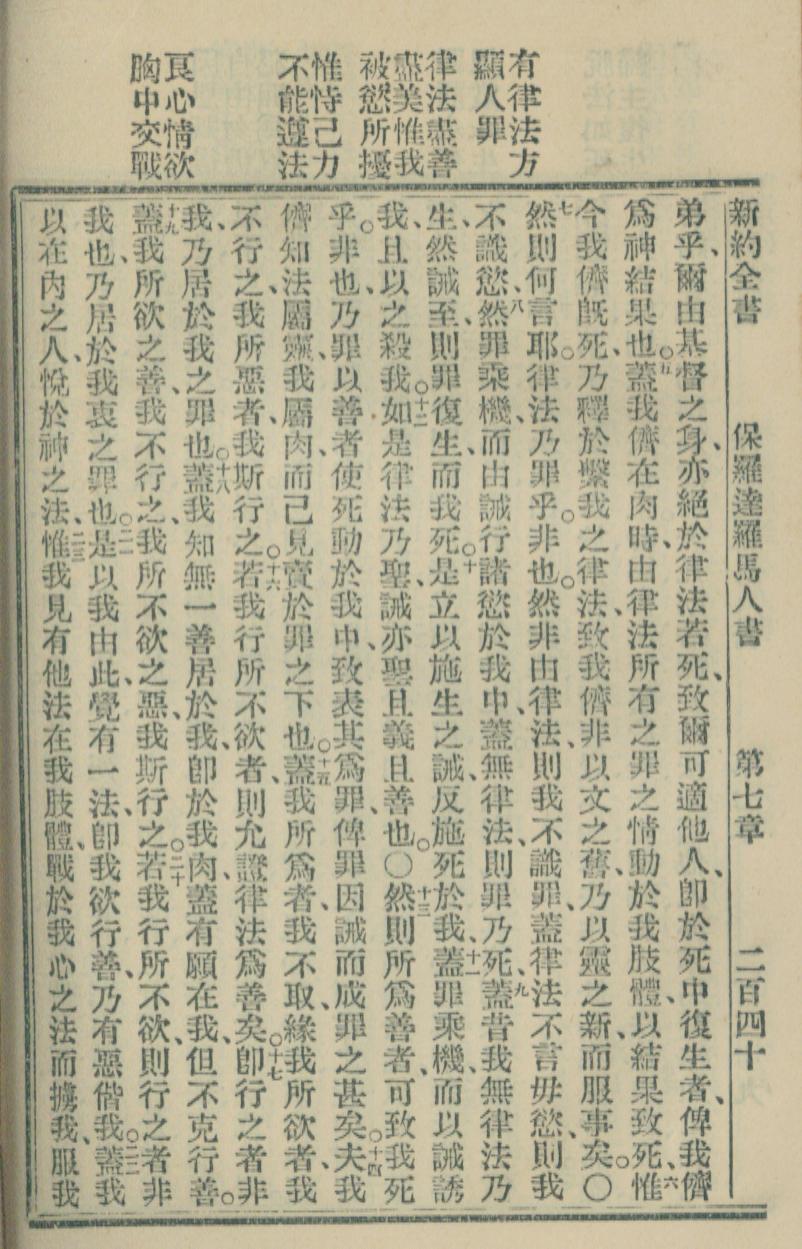 有律法方
顯人罪
律法盡善
盡美惟我
被慾所擾
惟恃己力
不能遵法
良心情欲
胸中交戰
新約全書 保羅達羅馬人書 第七章 二百四十
弟乎、爾由基督之身、亦絕於律法若死、致爾可適他人、卽於死中復生者、俾我儕
爲神結果也。五蓋我儕在肉時、由律法所有之罪之情動於我肢體、以結果致死、六惟
今我儕旣死、乃釋於繫我之律法、致我儕非以文之舊、乃以靈之新、而服事矣。〇
七然則何言耶。律法乃罪乎。非也。然非由律法、則我不識罪、蓋律法不言毋慾、則我
不識慾、八然罪乘機、而由誡行諸慾於我中、蓋無律法、則罪乃死、九蓋昔我無律法乃
生、然誡至、則罪復生、而我死。十是立以施生之誡、反施死於我、十一蓋罪乘機、而以誡誘
我、且以之殺我。十二如是律法乃聖、誡亦聖且義且善也。〇十三然則所爲善者、可致我死
乎。非也、乃罪以善者使死動於我中、致表其爲罪、俾罪因誡而成罪之甚矣。十四夫我
儕知法屬靈、我屬肉、而已見賣於罪之下也。十五蓋我所爲者、我不取、緣我所欲者、我
不行之、我所惡者、我斯行之。十六若我行所不欲者、則允證律法爲善矣。十七卽行之者非
我、乃居於我之罪也。十八蓋我知無一善居於我、卽於我肉、蓋有願在我、但不克行善。
十九蓋我所欲之善、我不行之、我所不欲之惡、我斯行之。二十若我行所不欲、則行之者非
我也、乃居於我衷之罪也。二一是以我由此、覺有一法、卽我欲行善、乃有惡偕我。二二蓋我
以在內之人、悅於神之法、二三惟我見有他法在我肢體、戰於我心之法、而擄我、服我